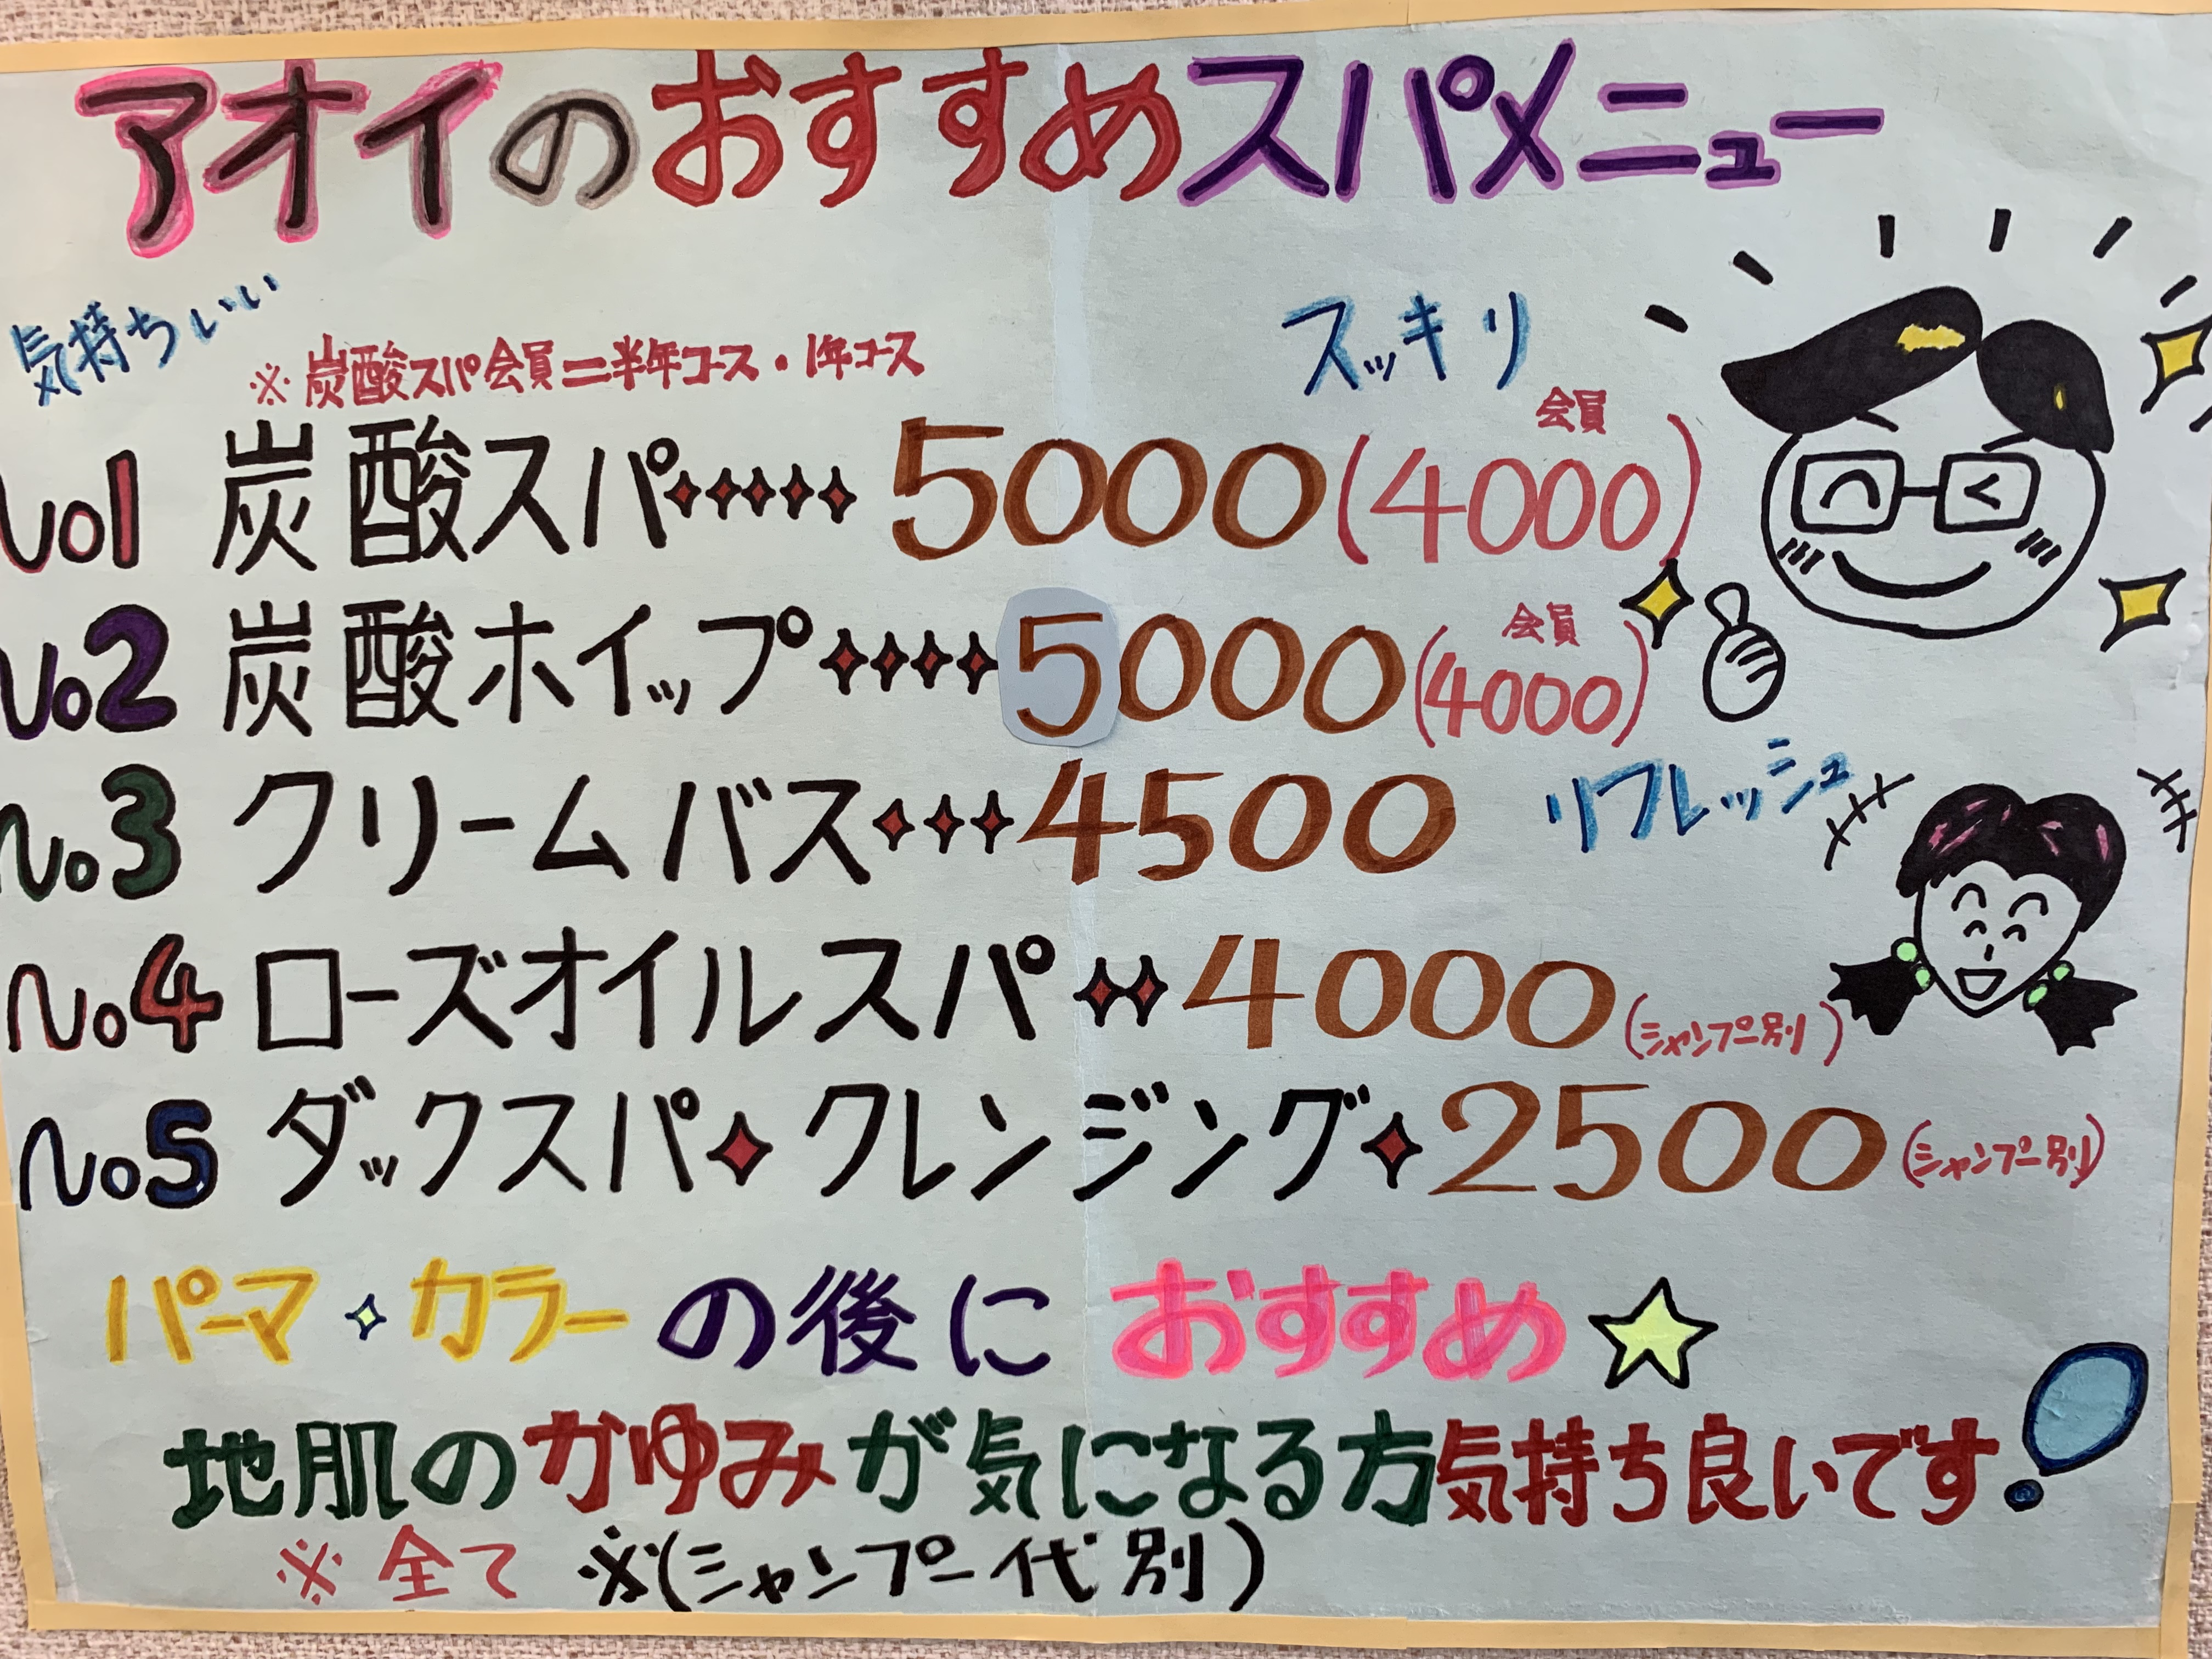 アオイのおすすめスパメニュー
気持ちいい
※炭酸スパ会員=半年コース・1年コース
スッキリ
No1 炭酸スパ 5000(4000) 会員
No2 炭酸ホイップ 5000(4000) 会員
No3 クリームバス 4500
リフレッシュ
No4 ローズオイルスパ 4000(シャンプー別)
No5 ダックスパ クレンジング 2500(シャンプー別)
パーマ・カラーの後におすすめ☆
地肌のかゆみが気になる方気持ち良いです!
※全て ※(シャンプー代別)